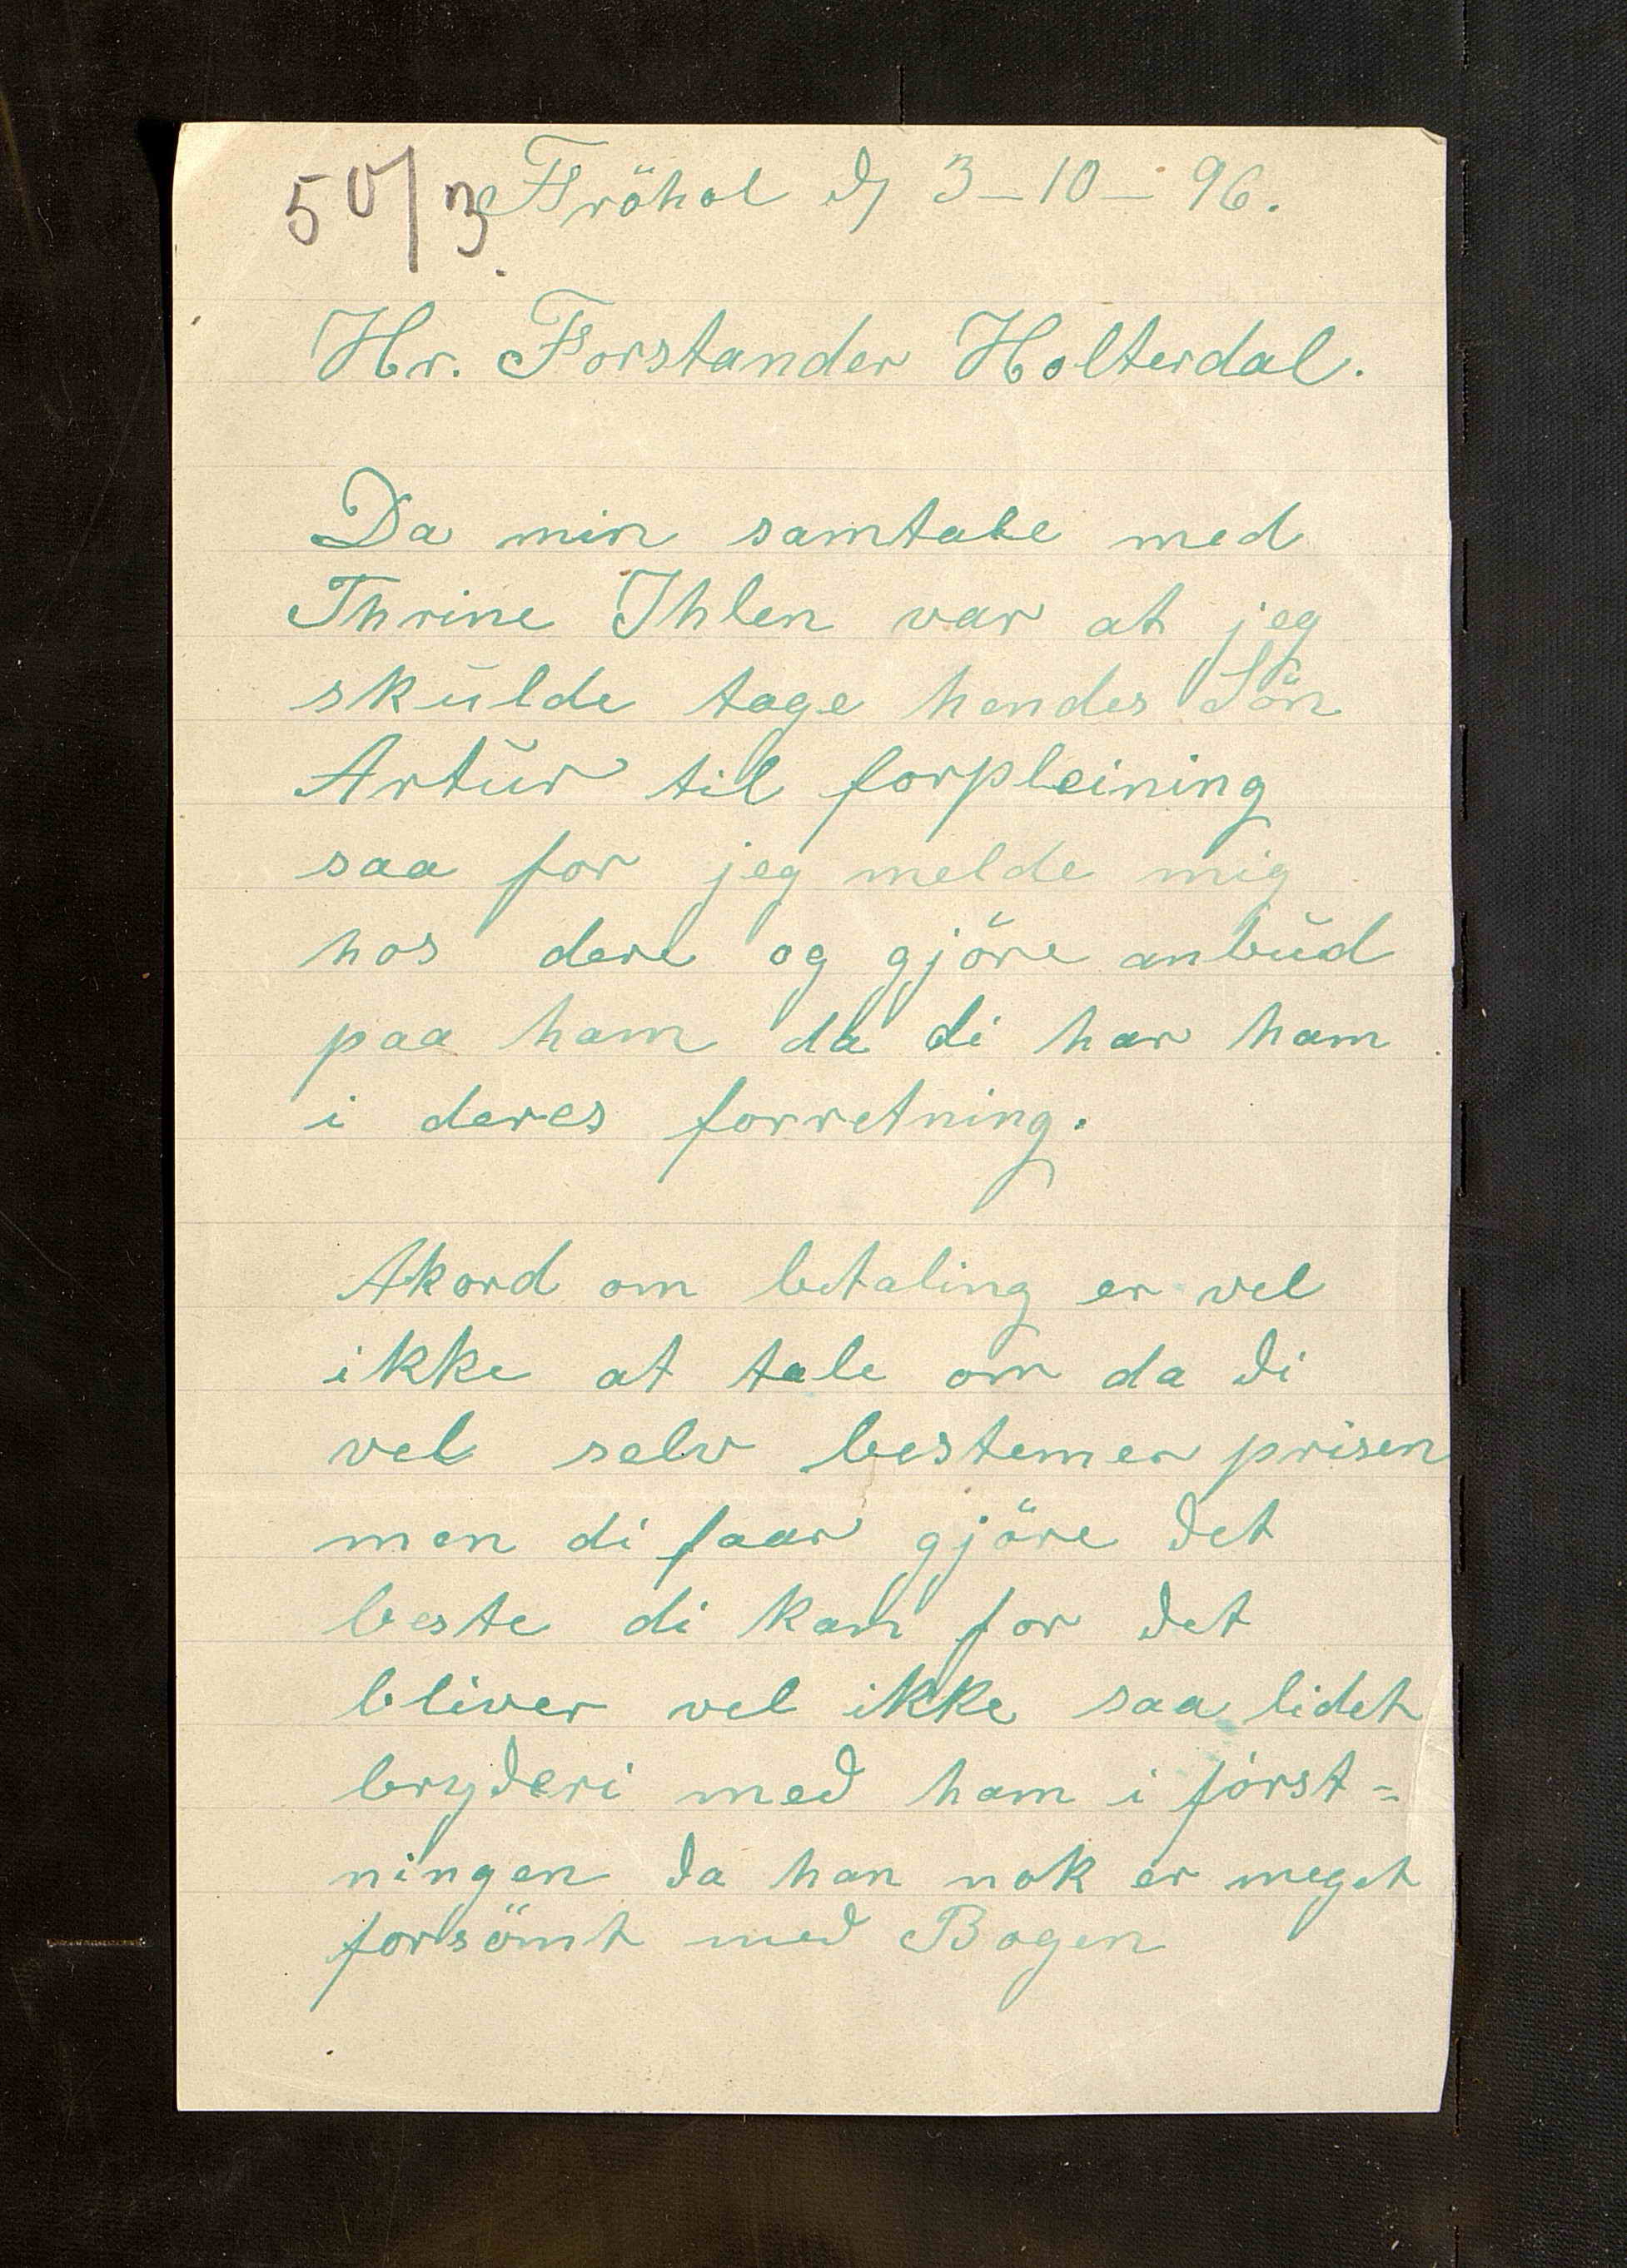 50/3. Fröhol d/ 3-10-96.
Hr. Forstander Holterdal.
Da min samtale med
Thrine Ihlen var at jeg
skulde tage hendes Sön
Artur til forpleining
saa for jeg melde mig
hos dere og gjöre anbud
paa ham da di har ham
i deres forretning.
Akord om betaling er vel
ikke at tale om da di
vel selv bestemer prisen
men di faar gjöre det
beste di kan for det
bliver vel ikke saa lidet
bryderi med ham i först=
ningen da han nok er meget
forsömt med Bogen